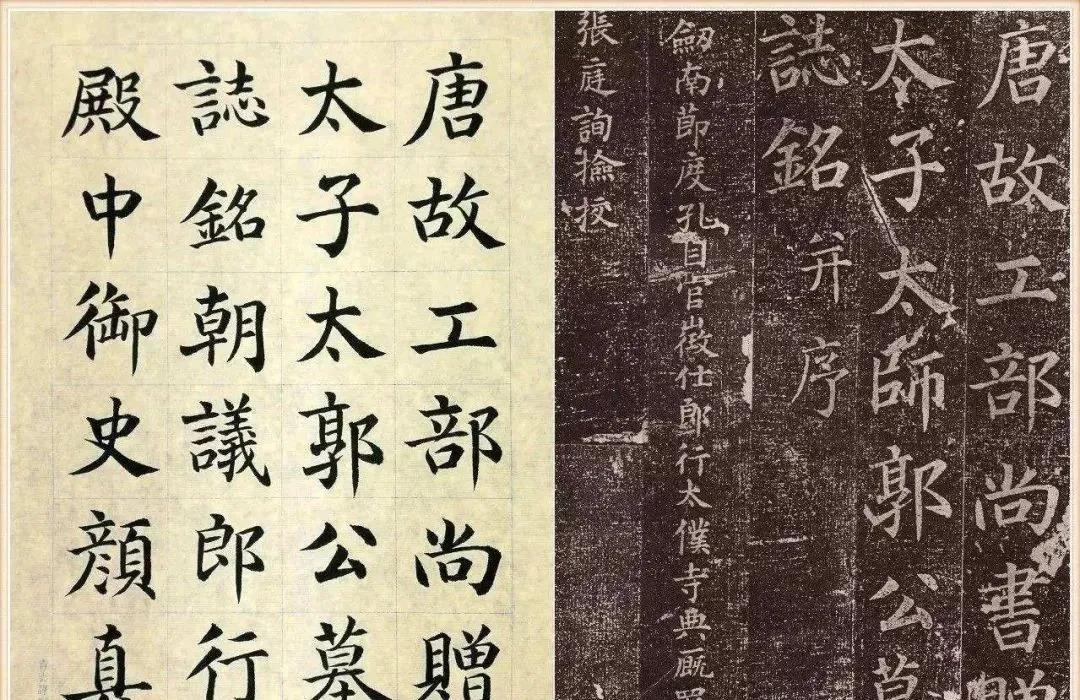 唐故工部尚書贈
太子太師郭公墓
誌銘并序
劒南節度孔目官徵仕郎行太僕寺典廄署
張庭詢撿挍
唐故工部尚贈
太子太郭公墓
誌銘朝議郎行
殿中御史顏真